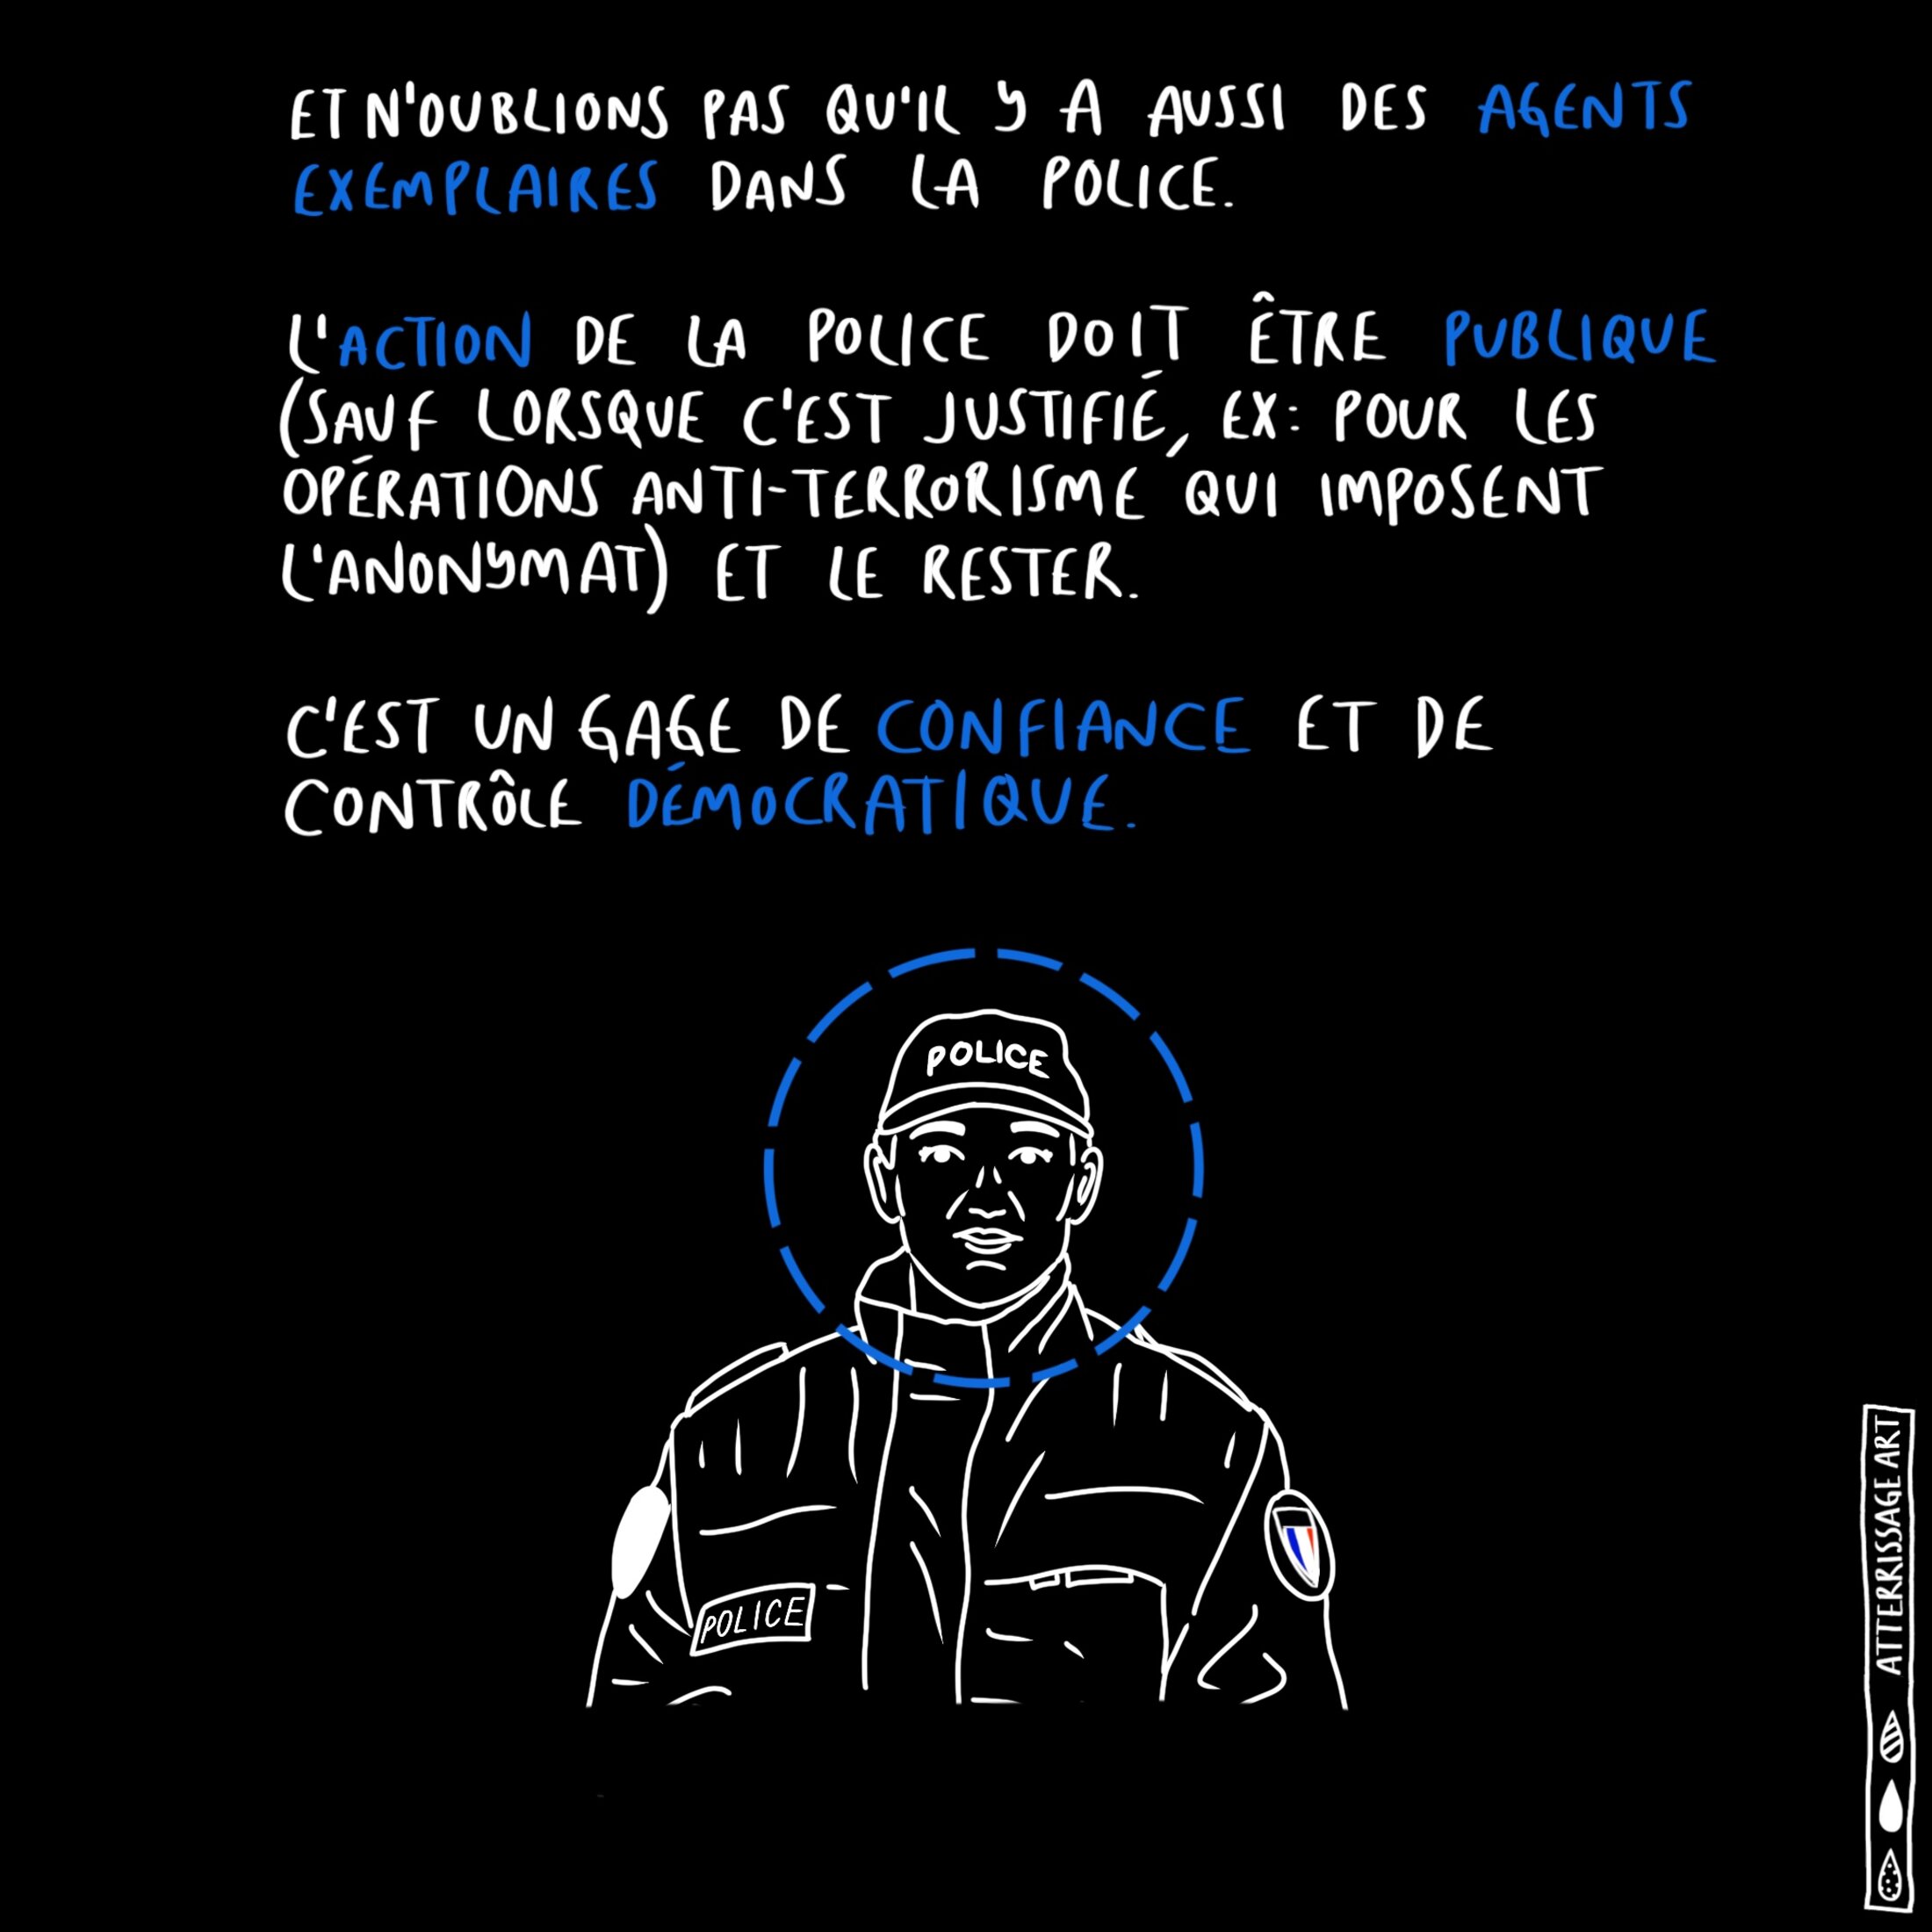 ET N'OUBLIONS PAS QU'IL Y A AUSSI DES AGENTS
EXEMPLAIRES DANS LA POLICE.
L'ACTION DE LA POLICE DOIT ÊTRE PUBLIQUE
(SAUF LORSQUE C'EST JUSTIFIÉ, EX: POUR LES
OPÉRATIONS ANTI-TERRORISME QUI IMPOSENT
L'ANONYMAT) ET LE RESTER.
C'EST UN GAGE DE CONFIANCE ET DE
CONTRÔLE DÉMOCRATIQUE.
POLICE
POLICE
ATTERRISSAGE ART